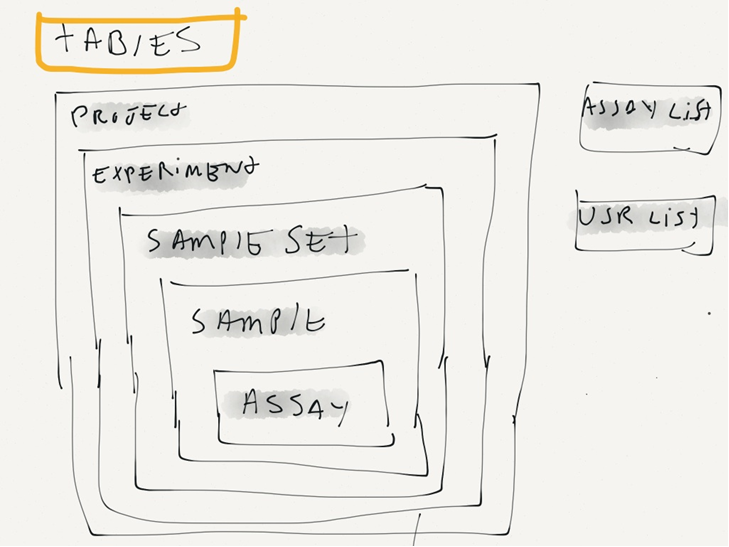 TABLES
PROJECT
EXPERIMENT
SAMPLE SET
SAMPLE
ASSAY
ASSAY LiST
USR LiST